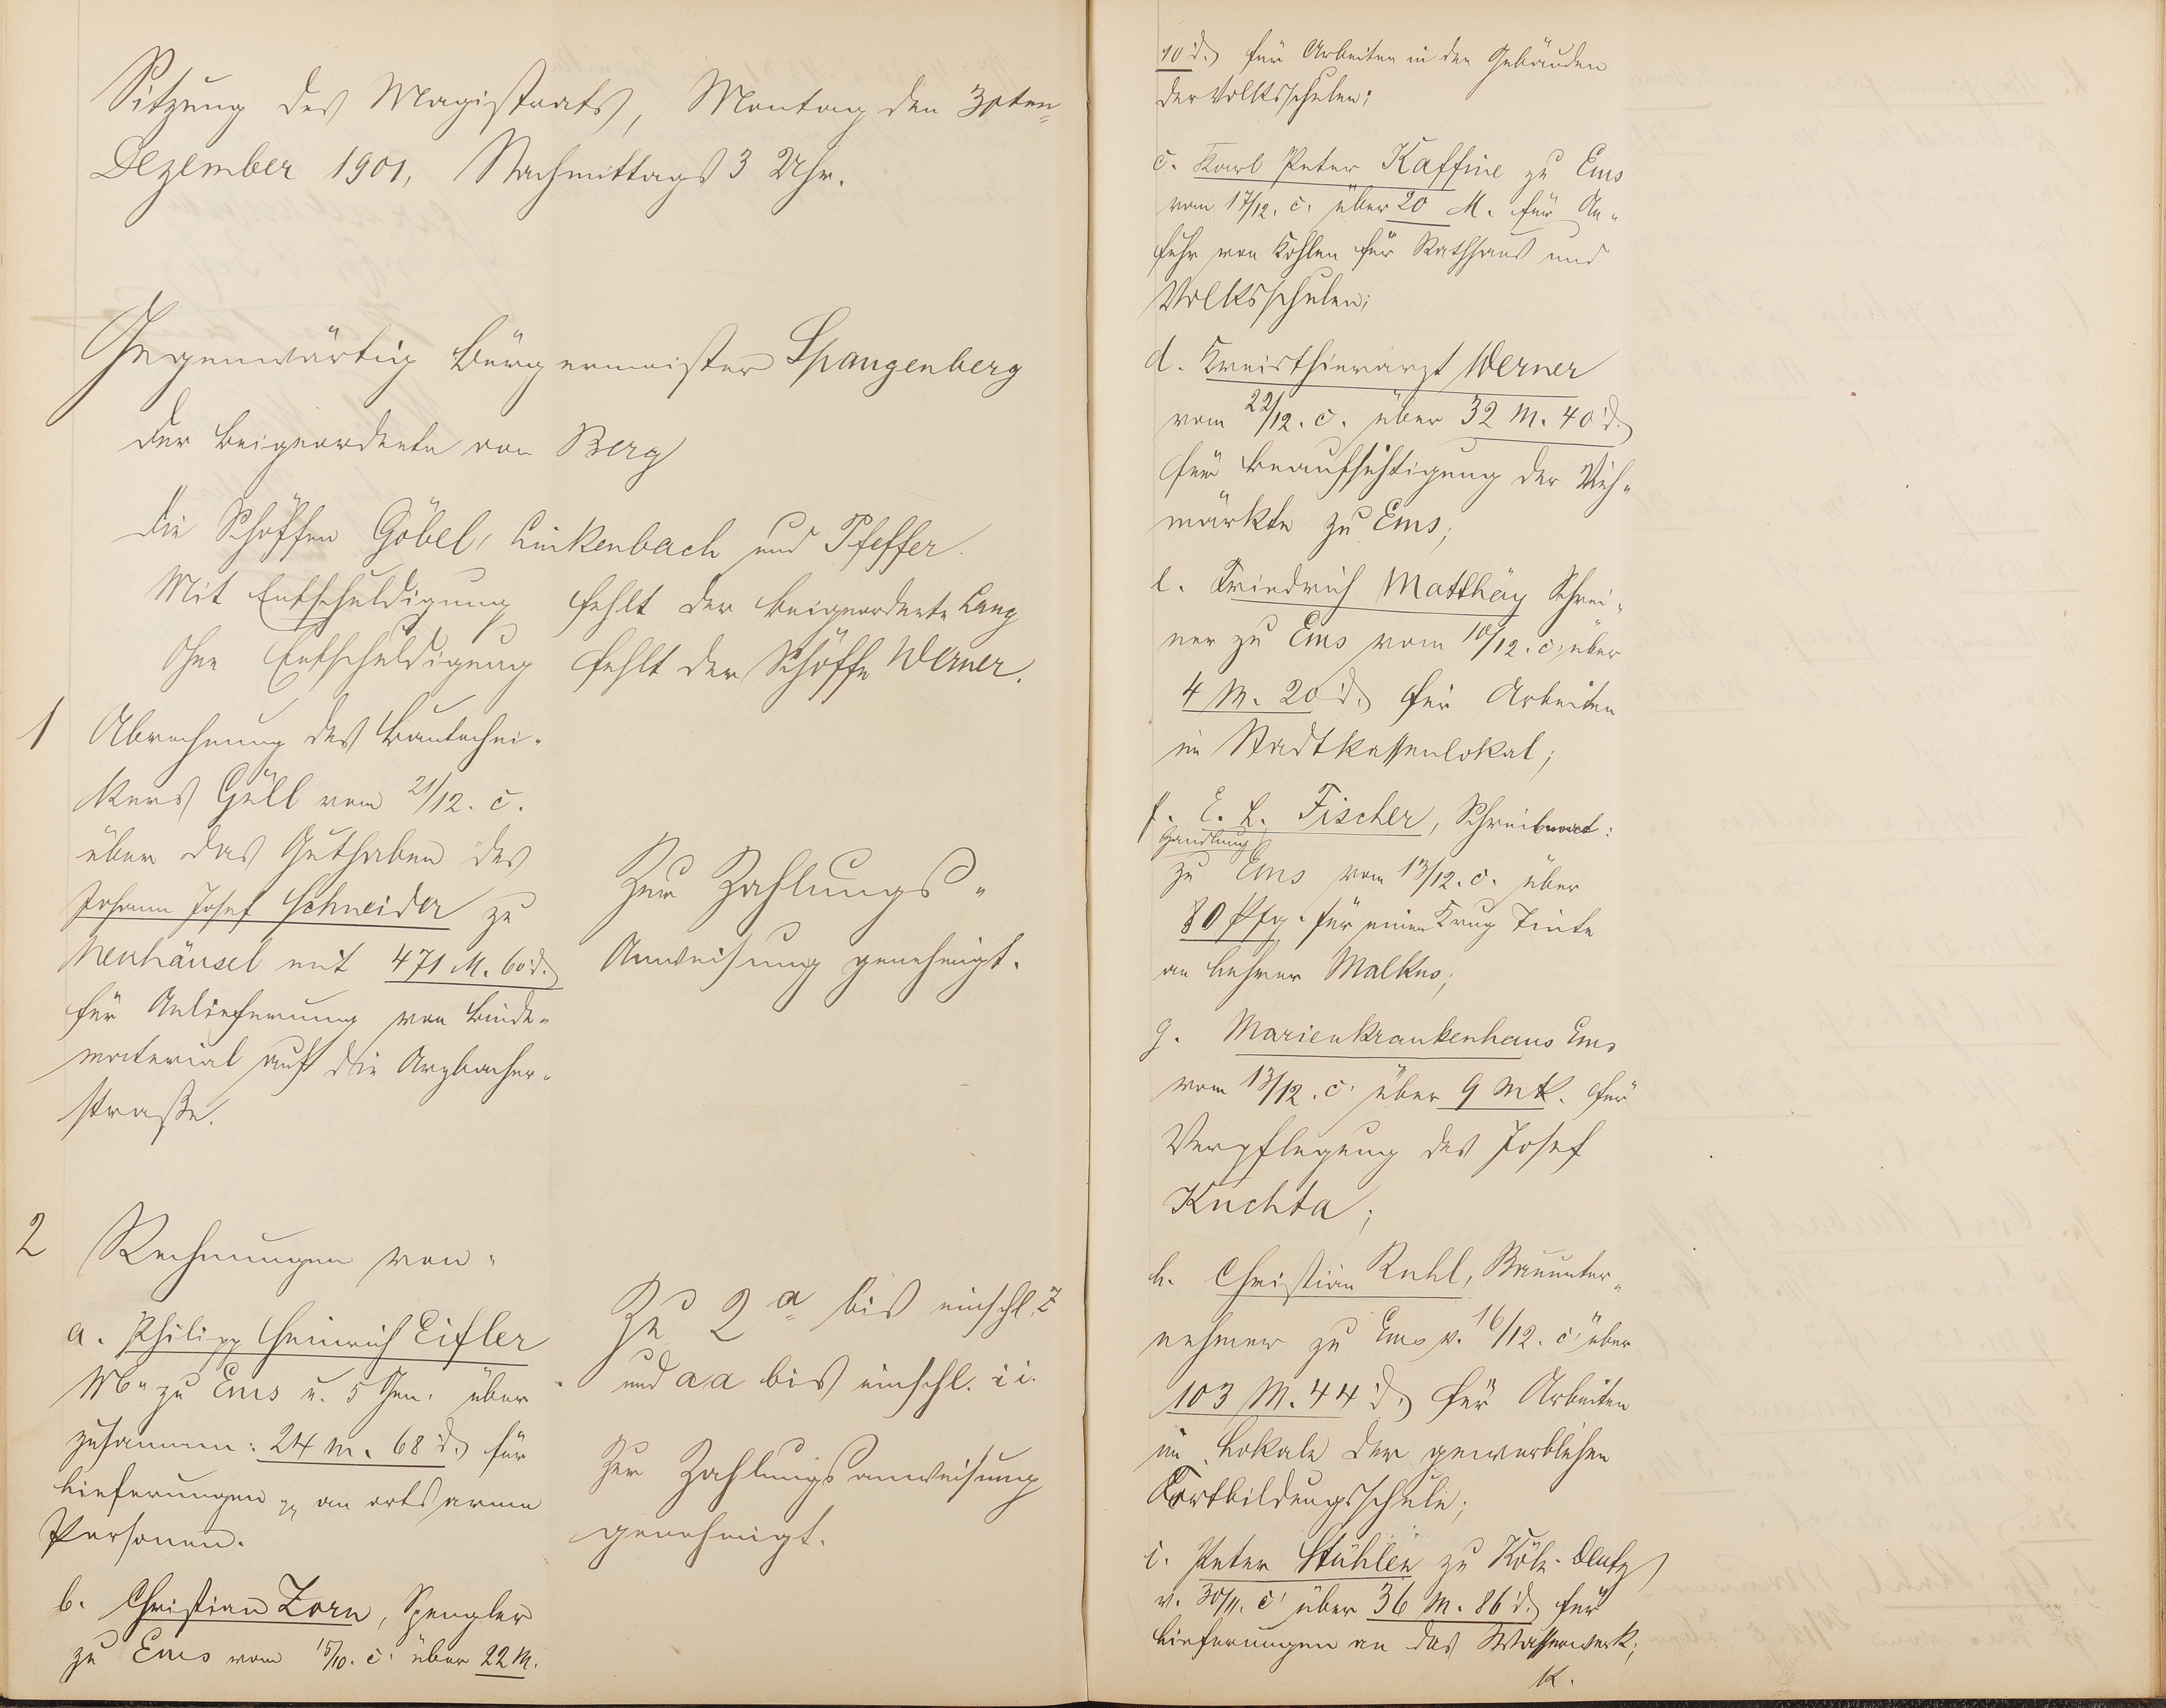 Sitzung des Magistrats, Montag den 30ten
Dezember 1901, Nachmittags 3 Uhr.
Gegenwärtig Bürgermeister Spangenberg
der Beigeordnete von Berg
die Schöffen Göbel, Linkenbach und Pfeffer.
Mit Entschuldigung fehlt der Beigeordnete Lang
Ohne Entschuldigung fehlt der Schöffe Werner.
1 Abrechnung des Bautechni-
kers Güll vom 21/12. c.
über das Guthaben des
Johann Josef Schneider zu
Neuhäusel mit 471 M. 60 d.
für Anlieferung von Binde-
material auf die Arzbacher-
straße.
Zur Zahlungs-
Anweisung genehmigt.
2 Rechnungen von:
a. Philipp Heinrich Eifler
Ww zu Ems u. 5 Gen. über
zusammen: 24 M. 68 d. für
Lieferungen pp an ortsarme
Personen.
b. Christian Zorn, Spengler
zu Ems vom 15/10. c. über 22 M.
Zu 2 a bis einschl. z
und aa bis einschl. ii.
Zur Zahlungsanweisung
genehmigt.
10 d. für Arbeiten in den Gebäuden
der Volksschulen;
c. Karl Peter Kaffine zu Ems
vom 17/12. c. über 20 M. für An-
fuhr von Kohlen für Rathhaus und
Volksschulen;
d. Kreisthierarzt Werner
vom 22/12. c. über 32 M. 40 d.
für Beaufsichtigung der Vieh-
märkte zu Ems;
e. Friedrich Matthäy Schrei-
ner zu Ems vom 10/12. c. über
4 M. 20 d. für Arbeiten
im Stadtkassenlokal;
f. E. L. Fischer,
Handlung
zu Ems vom 13/12. c. über
80 Pfg. für einen Krug Tinte
an Lehrer Malkus;
g. Marienkrankenhaus Ems
vom 13/12. c. über 9 Mk. für
Verpflegung des Josef
Kuchta;
h. Christian Ruhl, Bauunter-
nehmer zu Ems v. 16/12. c. über
103 M. 44 d. für Arbeiten
im Lokale der gewerblichen
Fortbildungsschule;
i. Peter Stühlen zu Köln-Deutz
v. 30/11. c. über 36 M. 86 d. für
Lieferungen an das Wasserwerk;
k.